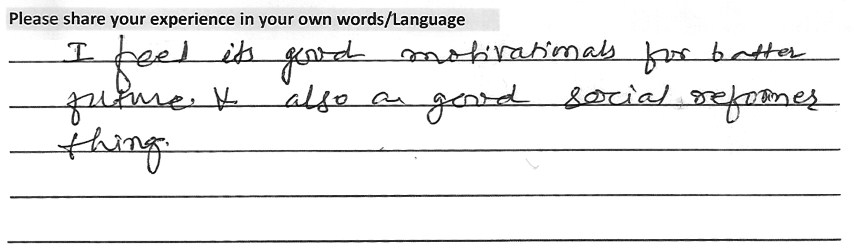 Please share your experience in your own words/Language
I feel its good motivationals for batter
future. & also a good social reformer
thing.